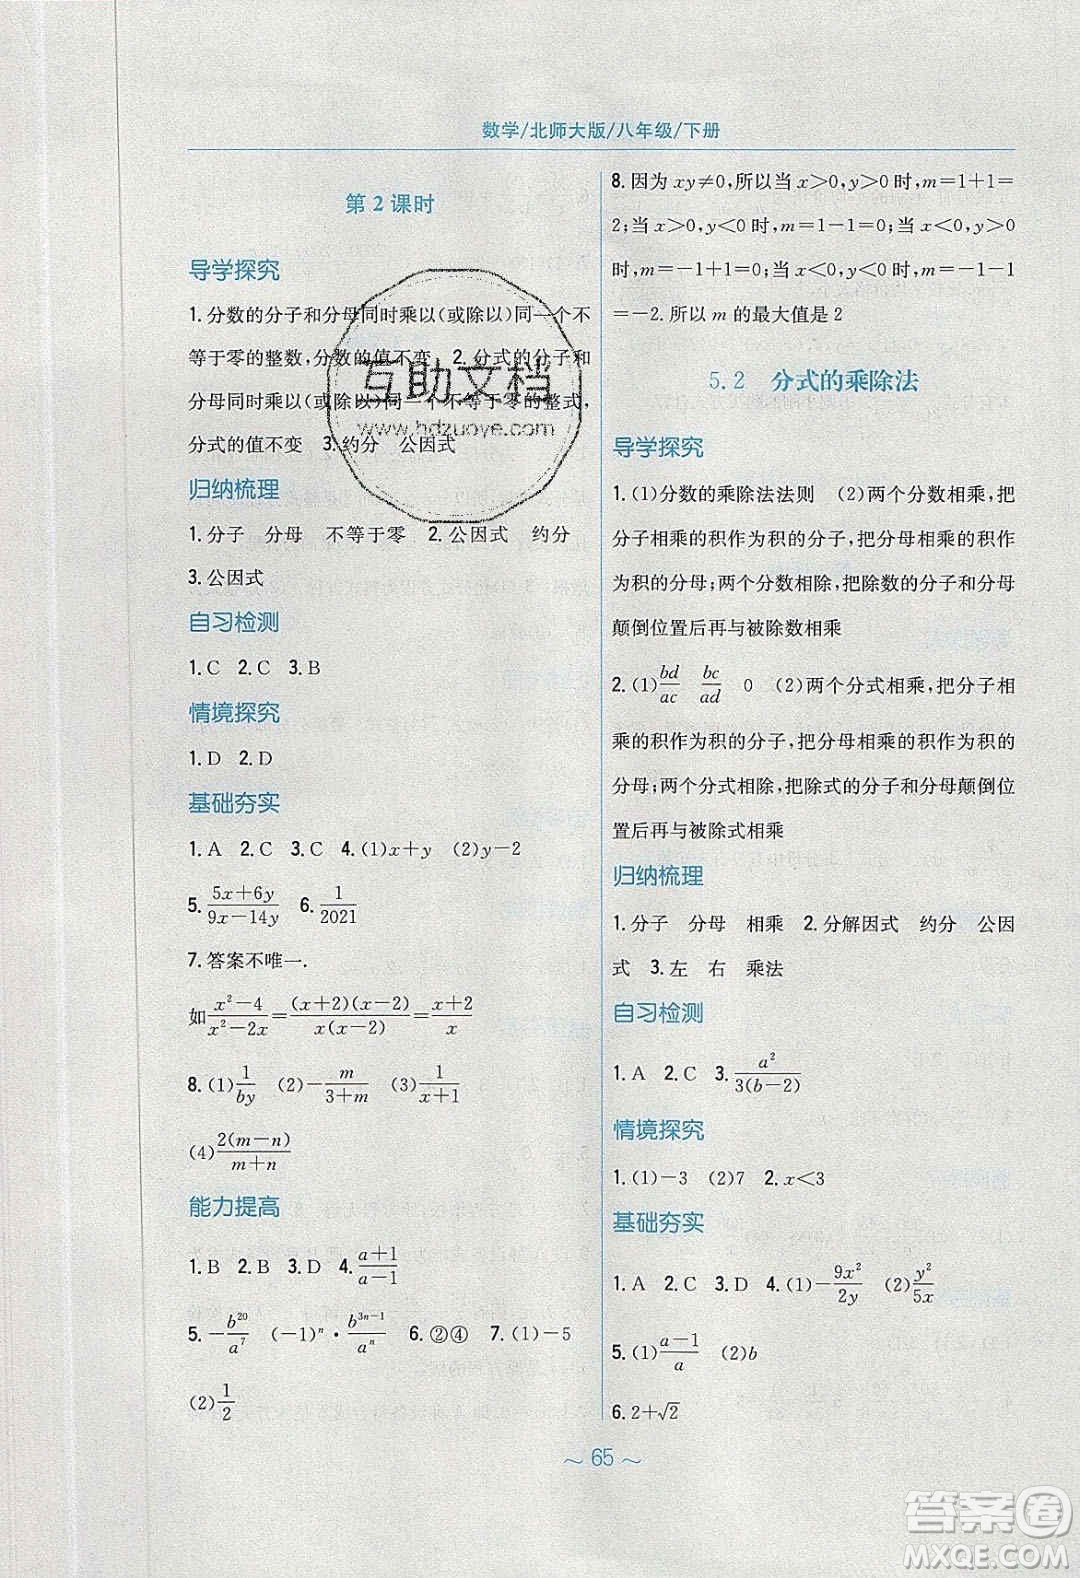 数学/北师大版/八年级/下册
第2课时
导学探究
1.分数的分子和分母同时乘以(或除以)同一个不
等于零的整数,分数的值不变 2.分式的分子和
分母同时乘以(或除以)同一个不等于零的整式,
分式的值不变 3.约分 公因式
归纳梳理
1.分子 分母 不等于零 2.公因式 约分
3.公因式
自习检测
1.C 2.C 3.B
情境探究
1.D 2.D
基础夯实
1.A 2.C 3.C 4.(1)x+y (2)y-2
5.\frac{5x+6y}{9x-14y} 6.\frac{1}{2021}
7.答案不唯一.
如\frac{x²-4}{x²-2x}=\frac{(x+2)(x-2)}{x(x-2)}=\frac{x+2}{x}
8.(1)\frac{1}{by} (2)-\frac{m}{3+m} (3)\frac{1}{x+4}
(4)\frac{2(m-n)}{m+n}
能力提高
1.B 2.B 3.D 4.\frac{a+1}{a-1}
5.-\frac{b^{20}}{a^{7}} (-1)^{n}·\frac{b^{3n-1}}{a^{n}} 6.②④ 7.(1)-5
(2)\frac{1}{2}
8.因为xy≠0,所以当x>0,y>0时,m=1+1=
2;当x>0,y<0时,m=1-1=0;当x<0,y>0
时,m=-1+1=0;当x<0,y<0时,m=-1-1
=-2.所以m的最大值是2
5.2 分式的乘除法
导学探究
1.(1)分数的乘除法法则 (2)两个分数相乘,把
分子相乘的积作为积的分子,把分母相乘的积作
为积的分母;两个分数相除,把除数的分子和分母
颠倒位置后再与被除数相乘
2.(1)\frac{bd}{ac} \frac{bc}{ad} 0 (2)两个分式相乘,把分子相
乘的积作为积的分子,把分母相乘的积作为积的
分母;两个分式相除,把除式的分子和分母颠倒位
置后再与被除式相乘
归纳梳理
1.分子 分母 相乘 2.分解因式 约分 公因
式 3.左 右 乘法
自习检测
1.A 2.C 3.\frac{a²}{3(b-2)}
情境探究
1.(1)-3 (2)7 2.x<3
基础夯实
1.A 2.C 3.D 4.(1)-\frac{9x²}{2y} (2)\frac{y²}{5x}
5.(1)\frac{a-1}{a} (2)b
6.2+√2
~ 65 ~
互助文档
www.hdzuoye.com
答案圈
MXQE.COM